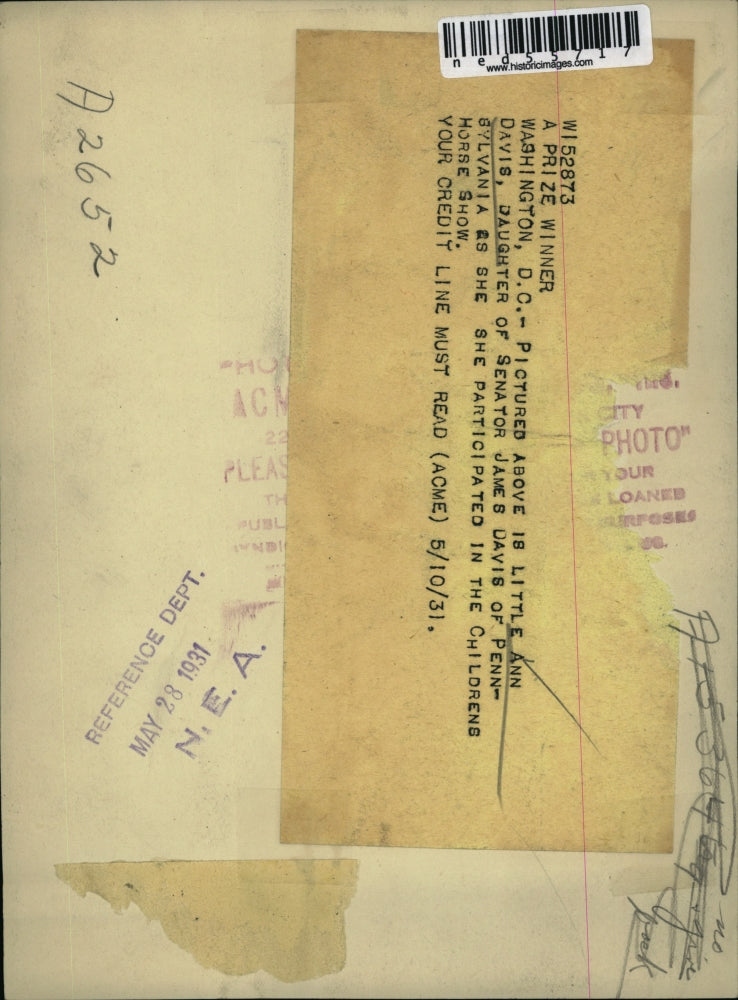 ned55717
www.historicimages.com
W152873
A PRIZE WINNER
WASHINGTON, D.C.- PICTURED ABOVE IS LITTLE ANN
DAVIS, DAUGHTER OF SENATOR JAMES DAVIS OF PENN-
SYLVANIA AS SHE SHE PARTICIPATED IN THE CHILDRENS
HORSE SHOW.
YOUR CREDIT LINE MUST READ (ACME) 5/10/31.
A2652
ACM
22
PLEAS
TH
PUBL
CITY
PHOTO"
YOUR
LOANED
REFERENCE DEPT.
MAY 28 1931
N. E. A.
no
back